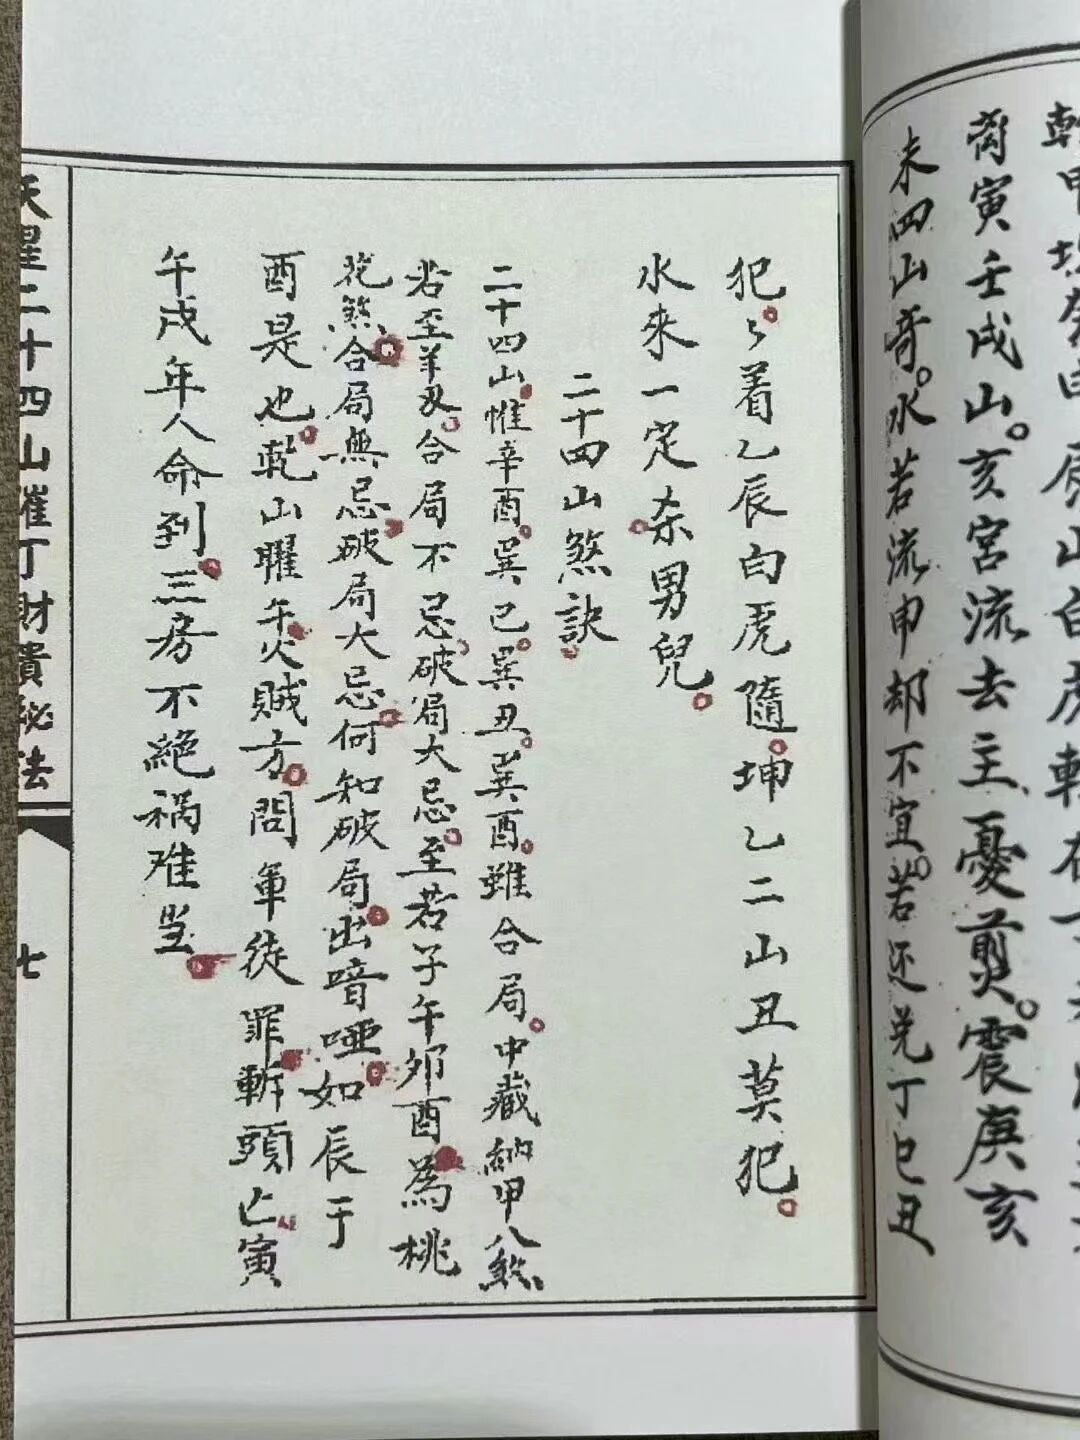 未四山奇。水若流申却不宜。若还兑丁巳丑
犯。〻着乙辰白虎隨。坤乙二山丑莫犯。
水來一定。杀男兒。
二十四山煞訣。
二十四山。惟辛酉。巽巳。巽丑。巽酉。雖合局。中藏納甲八煞
若至羊刃。合局不忌。破局大忌。至若子午卯酉為桃
花煞。合局無忌。破局大忌。何知破局。出喑啞。如辰于
酉是也。乾山曜午火賊方。問軍徒罪斬頭亡。寅
午戌年人命到。三房不絕祸难当。
天星二十四山催丁財貴秘法
七